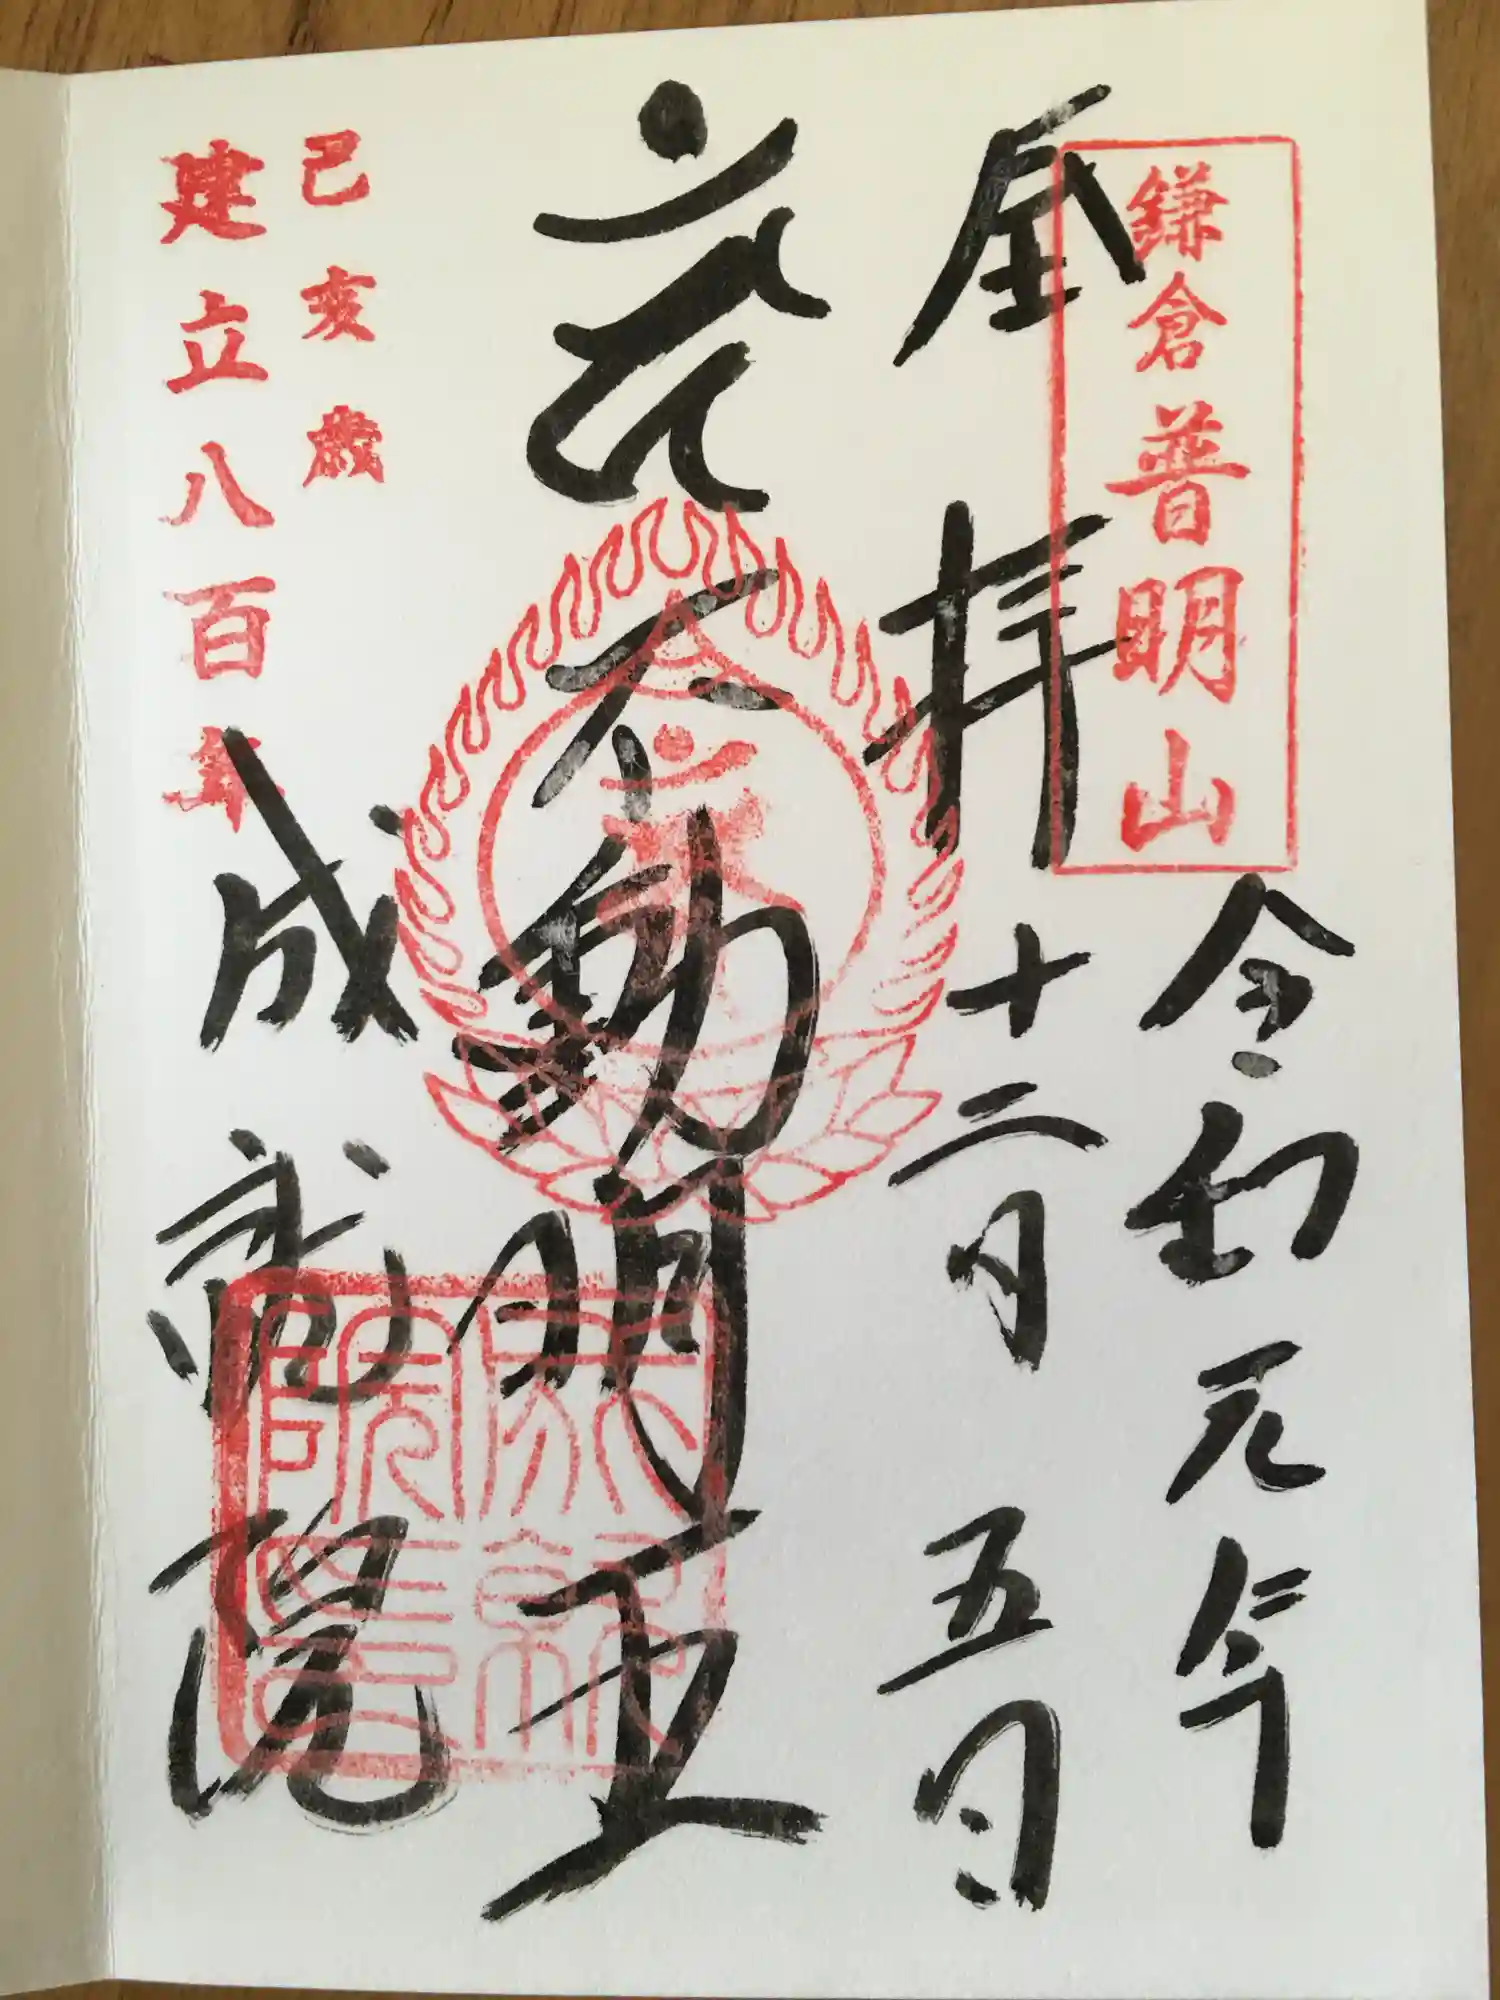 鎌倉普明山
令和元年
奉拝
十二月五日
不動明王
己亥歳
建立八百年
成就院